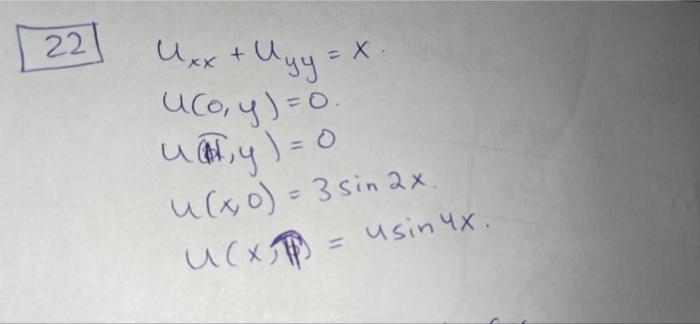 22
u_xx + u_yy = x.
u(0, y) = 0.
u(π, y) = 0
u(x, 0) = 3 sin 2x.
u(x, π) = 4 sin 4x.